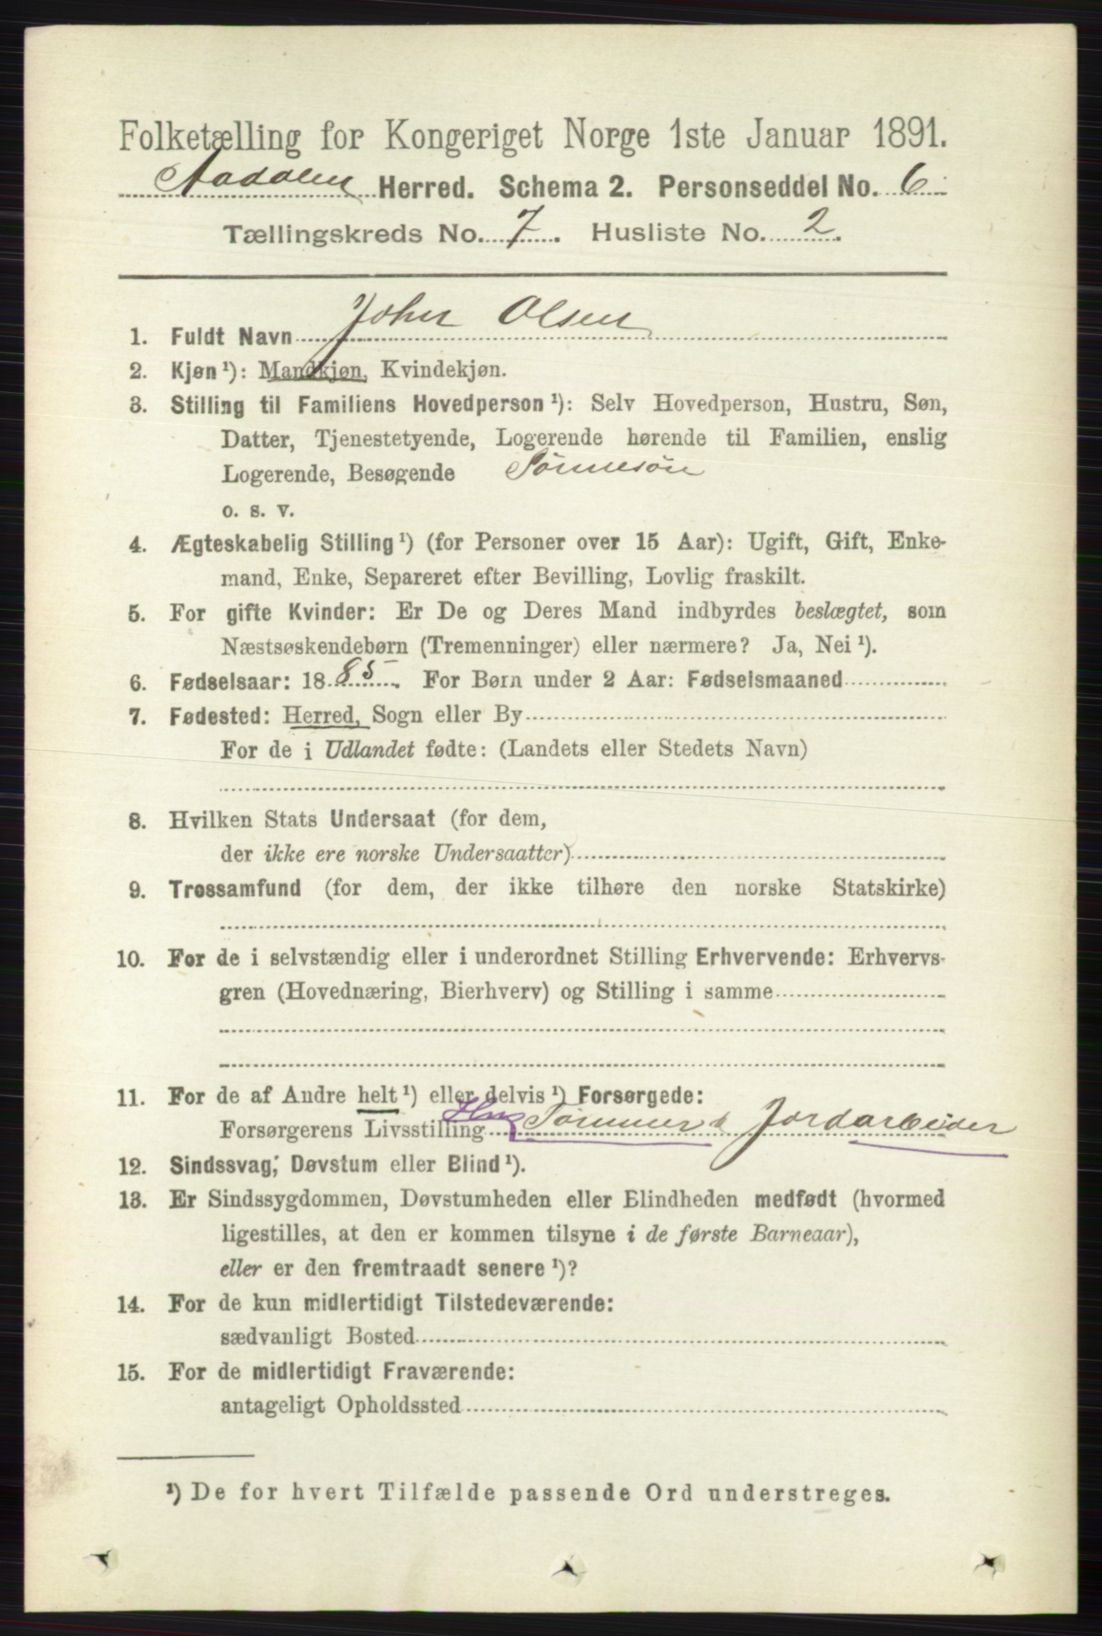 Folketælling for Kongeriget Norge 1ste Januar 1891.
Aadalen Herred. Schema 2. Personseddel No. 6
Tællingskreds No. 7. Husliste No. 2.
1. Fuldt Navn John Olsen
2. Kjøn ¹): Mandkjøn, Kvindekjøn.
3. Stilling til Familiens Hovedperson ¹): Selv Hovedperson, Hustru, Søn,
Datter, Tjenestetyende, Logerende hørende til Familien, enslig
Logerende, Besøgende Sønnesøn
o. s. v.
4. Ægteskabelig Stilling ¹) (for Personer over 15 Aar): Ugift, Gift, Enke-
mand, Enke, Separeret efter Bevilling, Lovlig fraskilt.
5. For gifte Kvinder: Er De og Deres Mand indbyrdes beslægtet, som
Næstsøskendebørn (Tremenninger) eller nærmere? Ja, Nei ¹).
6. Fødselsaar: 1885. For Børn under 2 Aar: Fødselsmaaned
7. Fødested: Herred, Sogn eller By
For de i Udlandet fødte: (Landets eller Stedets Navn)
8. Hvilken Stats Undersaat (for dem,
der ikke ere norske Undersaatter)
9. Trossamfund (for dem, der ikke tilhøre den norske Statskirke)
10. For de i selvstændig eller i underordnet Stilling Erhvervende: Erhvervs-
gren (Hovednæring, Bierhverv) og Stilling i samme
11. For de af Andre helt ¹) eller delvis ¹) Forsørgede:
Forsørgerens Livsstilling Tømmer & Jordarbeider
12. Sindssvag, Døvstum eller Blind ¹).
13. Er Sindssygdommen, Døvstumheden eller Blindheden medfødt (hvormed
ligestilles, at den er kommen tilsyne i de første Barneaar),
eller er den fremtraadt senere ¹)?
14. For de kun midlertidigt Tilstedeværende:
sædvanligt Bosted
15. For de midlertidigt Fraværende:
antageligt Opholdssted
¹) De for hvert Tilfælde passende Ord understreges.